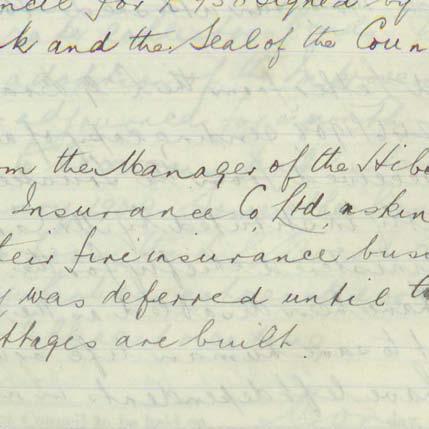 ncil for £ 950 signed by
k and the Seal of the Coun
om the Manager of the Hibe
Insurance Co Ltd askin
their fire insurance busi
y was deferred until t
ttages are built.